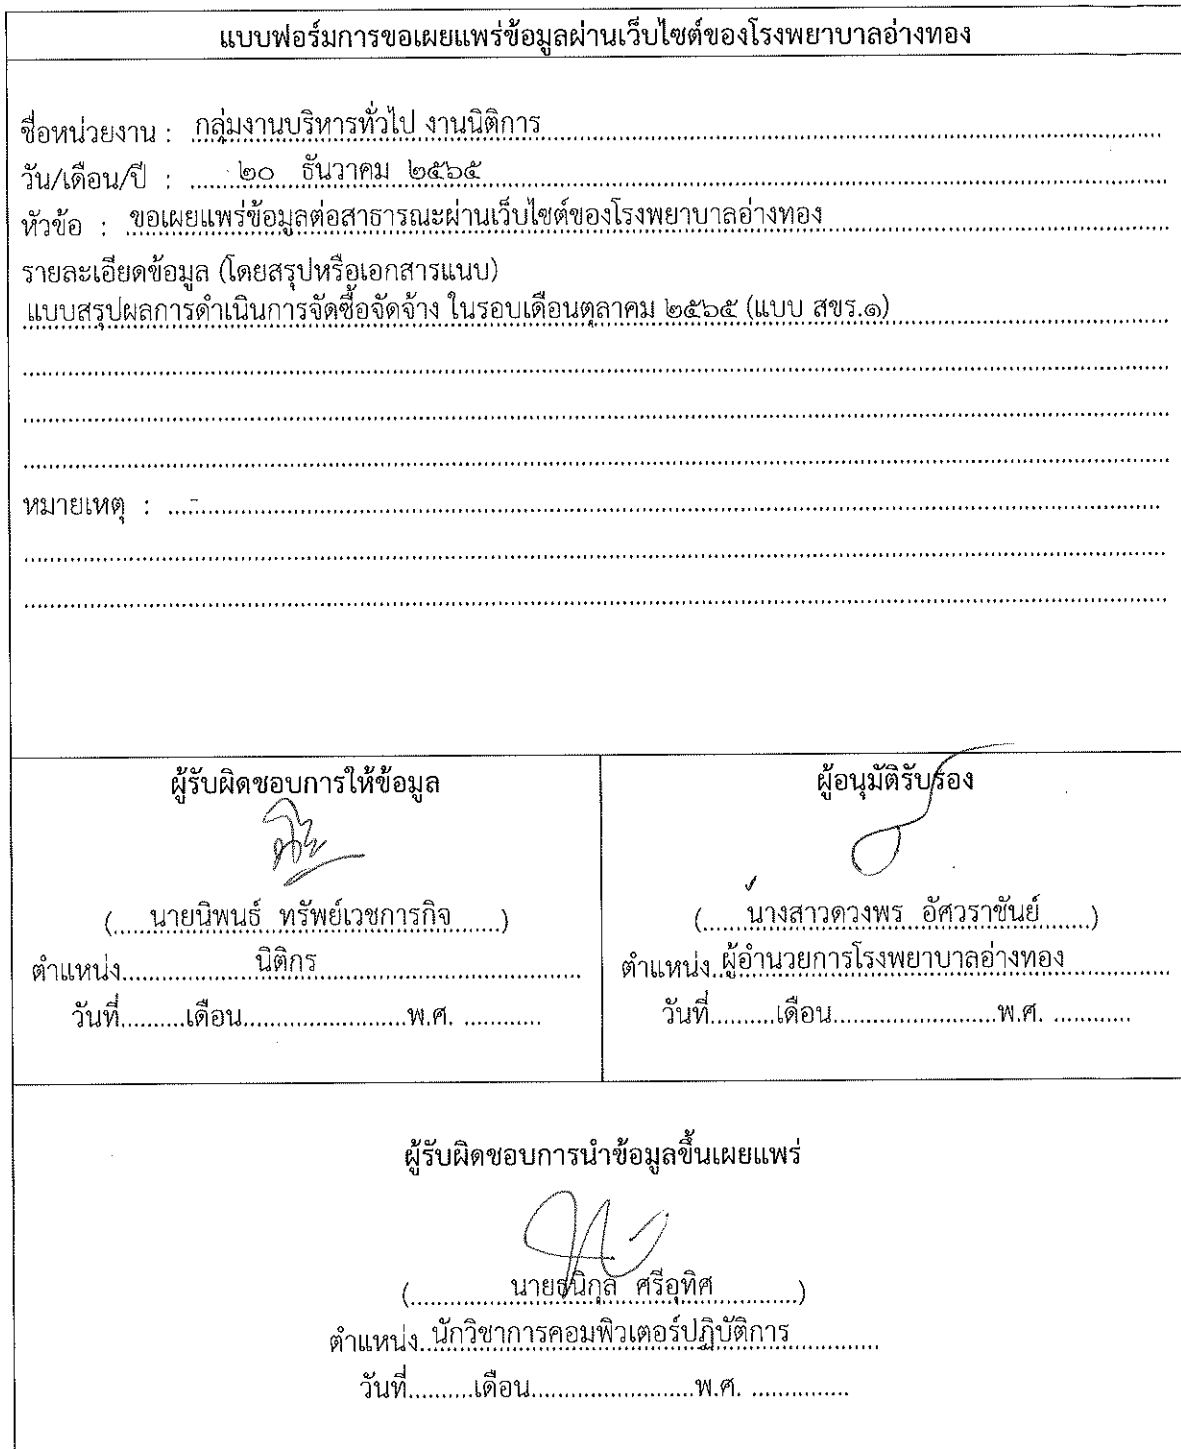 แบบฟอร์มการขอเผยแพร่ข้อมูลผ่านเว็บไซต์ของโรงพยาบาลอ่างทอง
ชื่อหน่วยงาน : กลุ่มงานบริหารทั่วไป งานนิติการ
วัน/เดือน/ปี : ๒๐ ธันวาคม ๒๕๖๕
หัวข้อ : ขอเผยแพร่ข้อมูลต่อสาธารณะผ่านเว็บไซต์ของโรงพยาบาลอ่างทอง
รายละเอียดข้อมูล (โดยสรุปหรือเอกสารแนบ)
แบบสรุปผลการดำเนินการจัดซื้อจัดจ้าง ในรอบเดือนตุลาคม ๒๕๖๕ (แบบ สขร.๑)
หมายเหตุ : -
ผู้รับผิดชอบการให้ข้อมูล
(นายนิพนธ์ ทรัพย์เวชการกิจ)
ตำแหน่ง นิติกร
วันที่.........เดือน.......................พ.ศ. ...........
ผู้อนุมัติรับรอง
(นางสาวดวงพร อัศวราชันย์)
ตำแหน่ง ผู้อำนวยการโรงพยาบาลอ่างทอง
วันที่.........เดือน.......................พ.ศ. ...........
ผู้รับผิดชอบการนำข้อมูลขึ้นเผยแพร่
(นายธนิกุล ศรีอุทิศ)
ตำแหน่ง นักวิชาการคอมพิวเตอร์ปฏิบัติการ
วันที่.........เดือน.......................พ.ศ. ..............